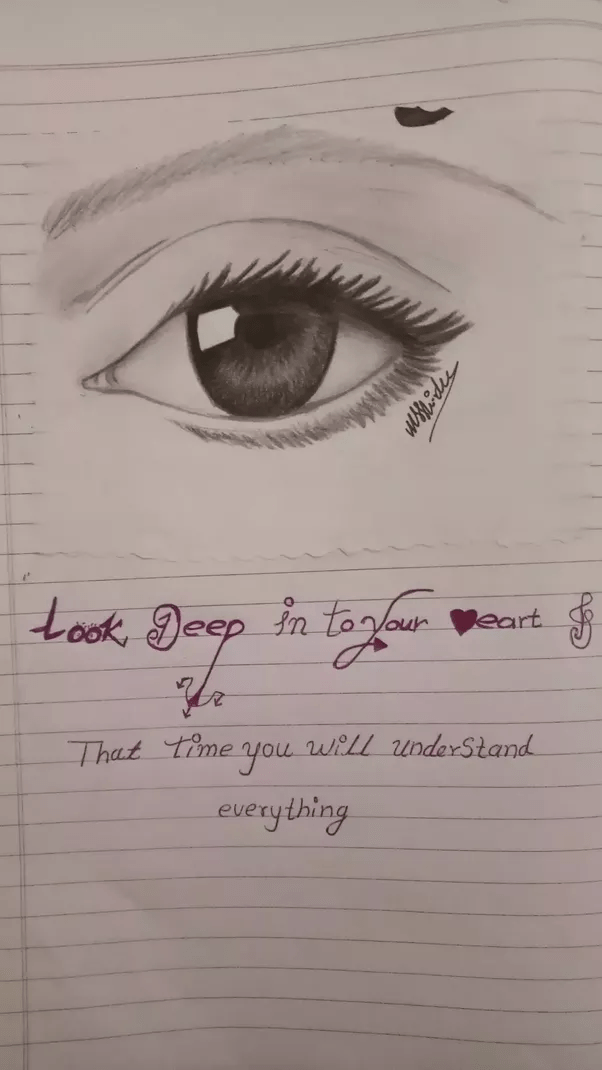 Look Deep in to your ♥eart
That time you will understand
everything